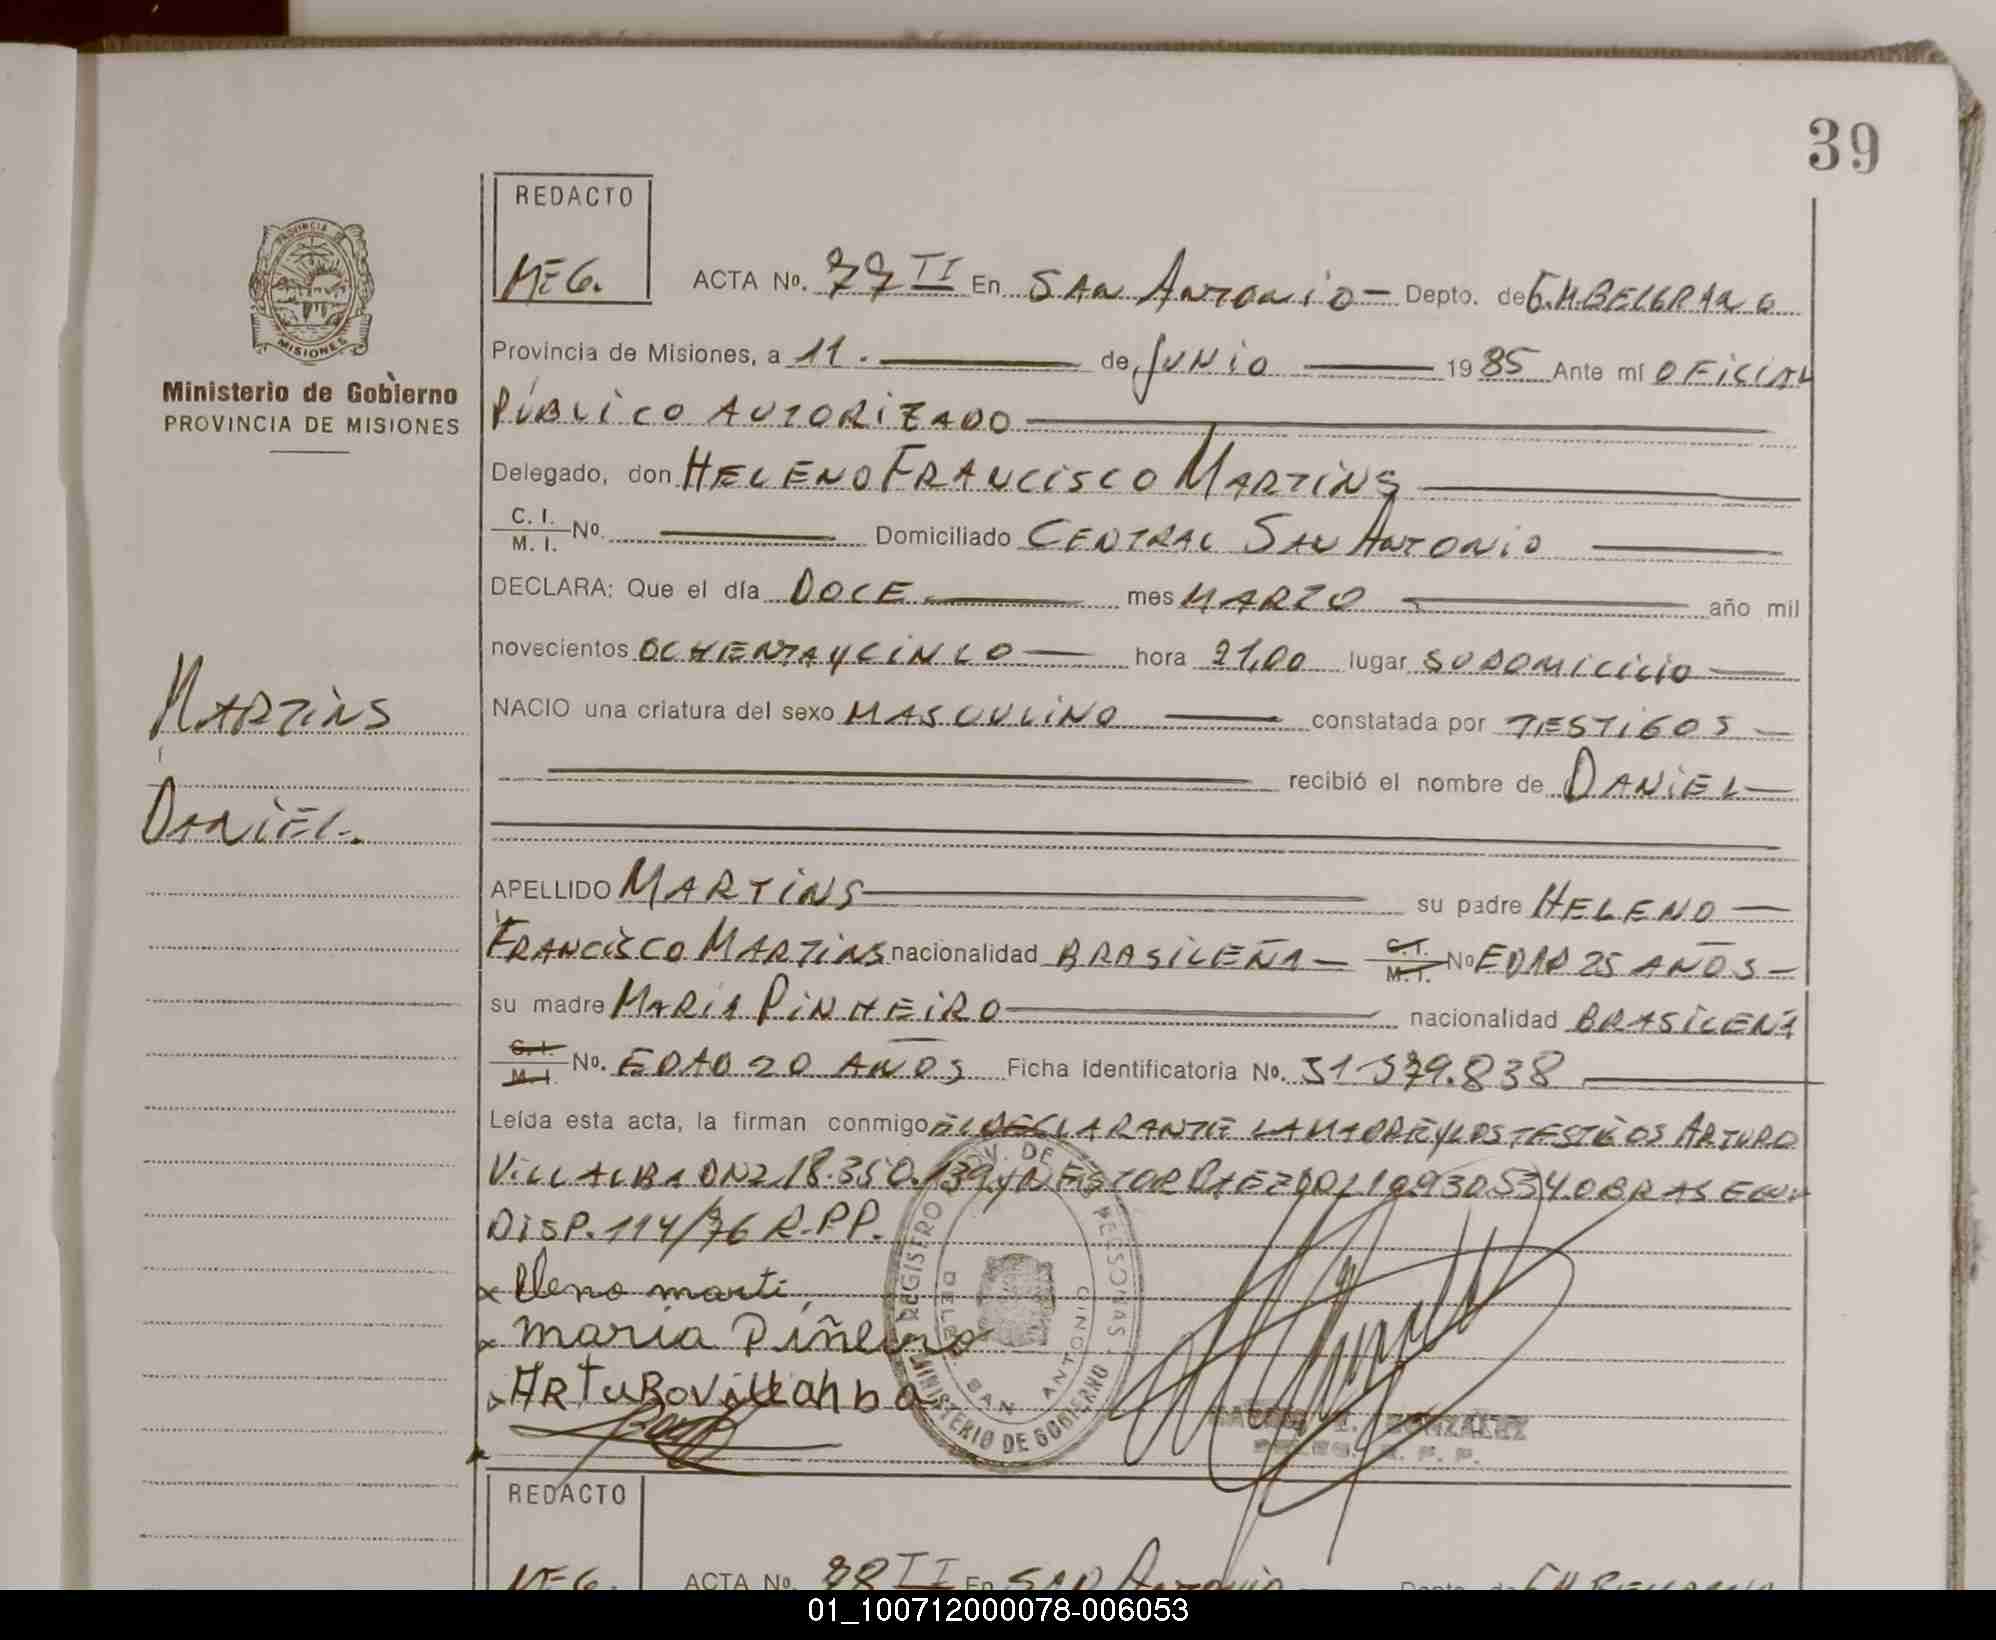 39
REDACTO
MEG.
ACTA No. 77 II En SAN ANTONIO — Depto. de G.M.BELGRANO
PROVINCIA DE
MISIONES
Ministerio de Gobierno
PROVINCIA DE MISIONES
Provincia de Misiones, a 11. — de JUNIO — 1985 Ante mí OFICIAL
PÚBLICO AUTORIZADO —
Delegado, don HELENO FRANCISCO MARTINS —
C. I.
M. I. No. — Domiciliado CENTRAL SAN ANTONIO —
DECLARA: Que el día DOCE — mes MARZO — año mil
novecientos OCHENTA Y CINCO — hora 21,00 lugar SU DOMICILIO —
MARTINS
NACIO una criatura del sexo MASCULINO — constatada por TESTIGOS —
— recibió el nombre de DANIEL —
DANIEL.
APELLIDO MARTINS — su padre HELENO —
FRANCISCO MARTINS nacionalidad BRASILEÑA — C.I. M.I. No EDAD 25 AÑOS —
su madre MARÍA PINHEIRO — nacionalidad BRASILEÑA
C.I. M.I. No. EDAD 20 AÑOS Ficha Identificatoria No. 31.379.838 —
Leída esta acta, la firman conmigo EL DECLARANTE LA MADRE Y LOS TESTIGOS ARTURO
VILLALBA DNI 18.350.139 Y NESTOR BAEZ DNI 10.930.534. OBRAS
DISP. 114/76 R.PP.
x Eleno marti
x maria Piñeiro
x ARTuRO VillAhba
REGISTRO PROV. DE LAS PERSONAS
MINISTERIO DE GOBIERNO
SAN ANTONIO
GONZALEZ
R. P. P.
REDACTO
MEG.
ACTA No. 78 II En SAN Antonio — Depto. de G.M.BELGRANO
01_100712000078-006053